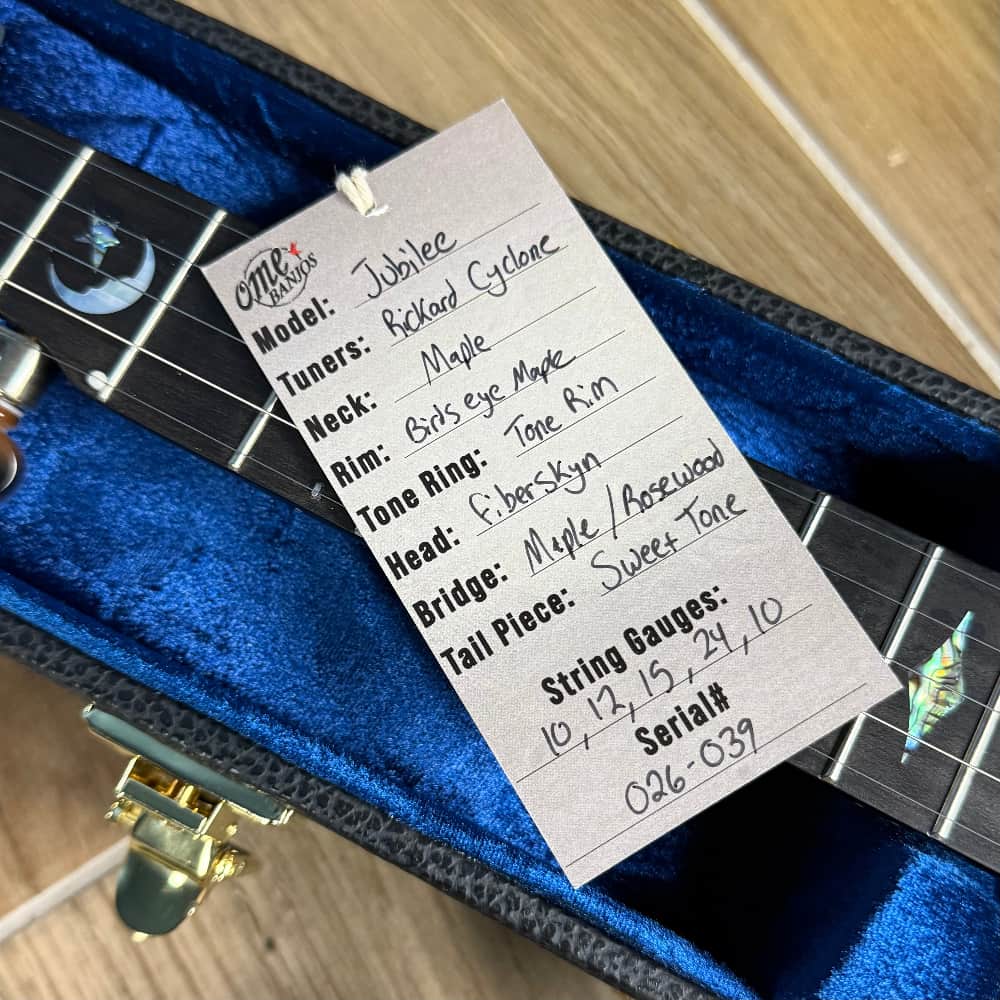 OME
BANJOS
Model: Jubilee
Tuners: Rickard Cyclone
Neck: Maple
Rim: Birdseye Maple
Tone Ring: Tone Rim
Head: Fiberskyn
Bridge: Maple/Rosewood
Tail Piece: Sweet Tone
String Gauges:
10, 12, 15, 24, 10
Serial#
026-039